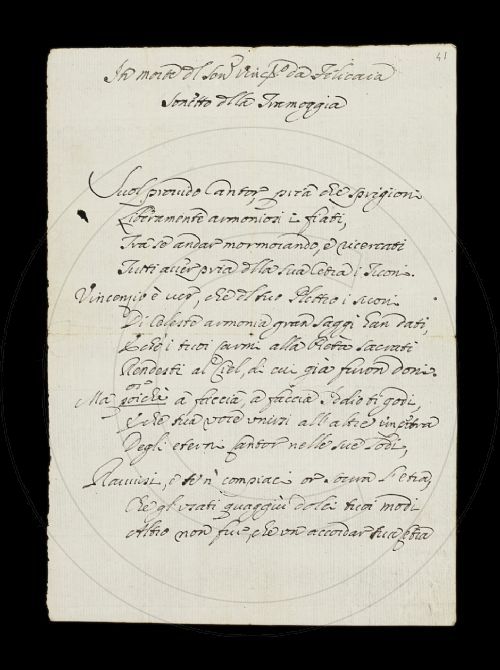 41
In morte del Sen.r Vinc.o da Filicaia
Sonetto della Tramoggia
Suol provido Cantor, pria che sprigioni
Liberamente armoniosi i fiati,
Tra se andar mormorando, e ricercati
Tutti aver pria della sua Cetra i Tuoni.
Vincenzio è ver, che del tuo Plettro i suoni
Di Celeste armonia gran saggi han dati,
E che i tuoi carmi alla Pietà sacrati
Rendesti al Ciel, di cui già furon doni.
or che
Ma poichè a faccia, a faccia Iddio ti godi,
E che tua voce unirsi all'altre impetra
Degli eterni Cantor nelle sue lodi,
Ravvisi, e te n' compiaci or sovra l'Etra,
Che gl'usati quaggiù dolci tuoi modi
Altro non fur, che un accordar tua Cetra